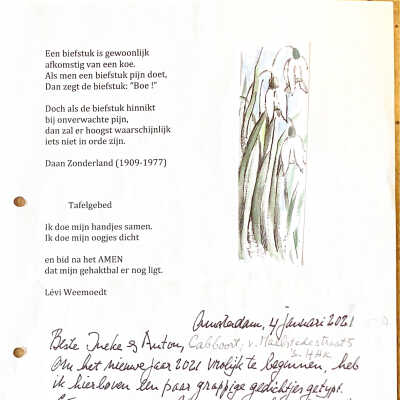 Een biefstuk is gewoonlijk
afkomstig van een koe.
Als men een biefstuk pijn doet,
Dan zegt de biefstuk: "Boe !"
Doch als de biefstuk hinnikt
bij onverwachte pijn,
dan zal er hoogst waarschijnlijk
iets niet in orde zijn.
Daan Zonderland (1909-1977)
Tafelgebed
Ik doe mijn handjes samen.
Ik doe mijn oogjes dicht
en bid na het AMEN
dat mijn gehaktbal er nog ligt.
Lévi Weemoedt
Amsterdam, 4 januari 2021
Beste Ineke & Anton,
Om het nieuwe jaar 2021 vrolijk te beginnen, heb
ik hierboven een paar grappige gedichtjes getypt.